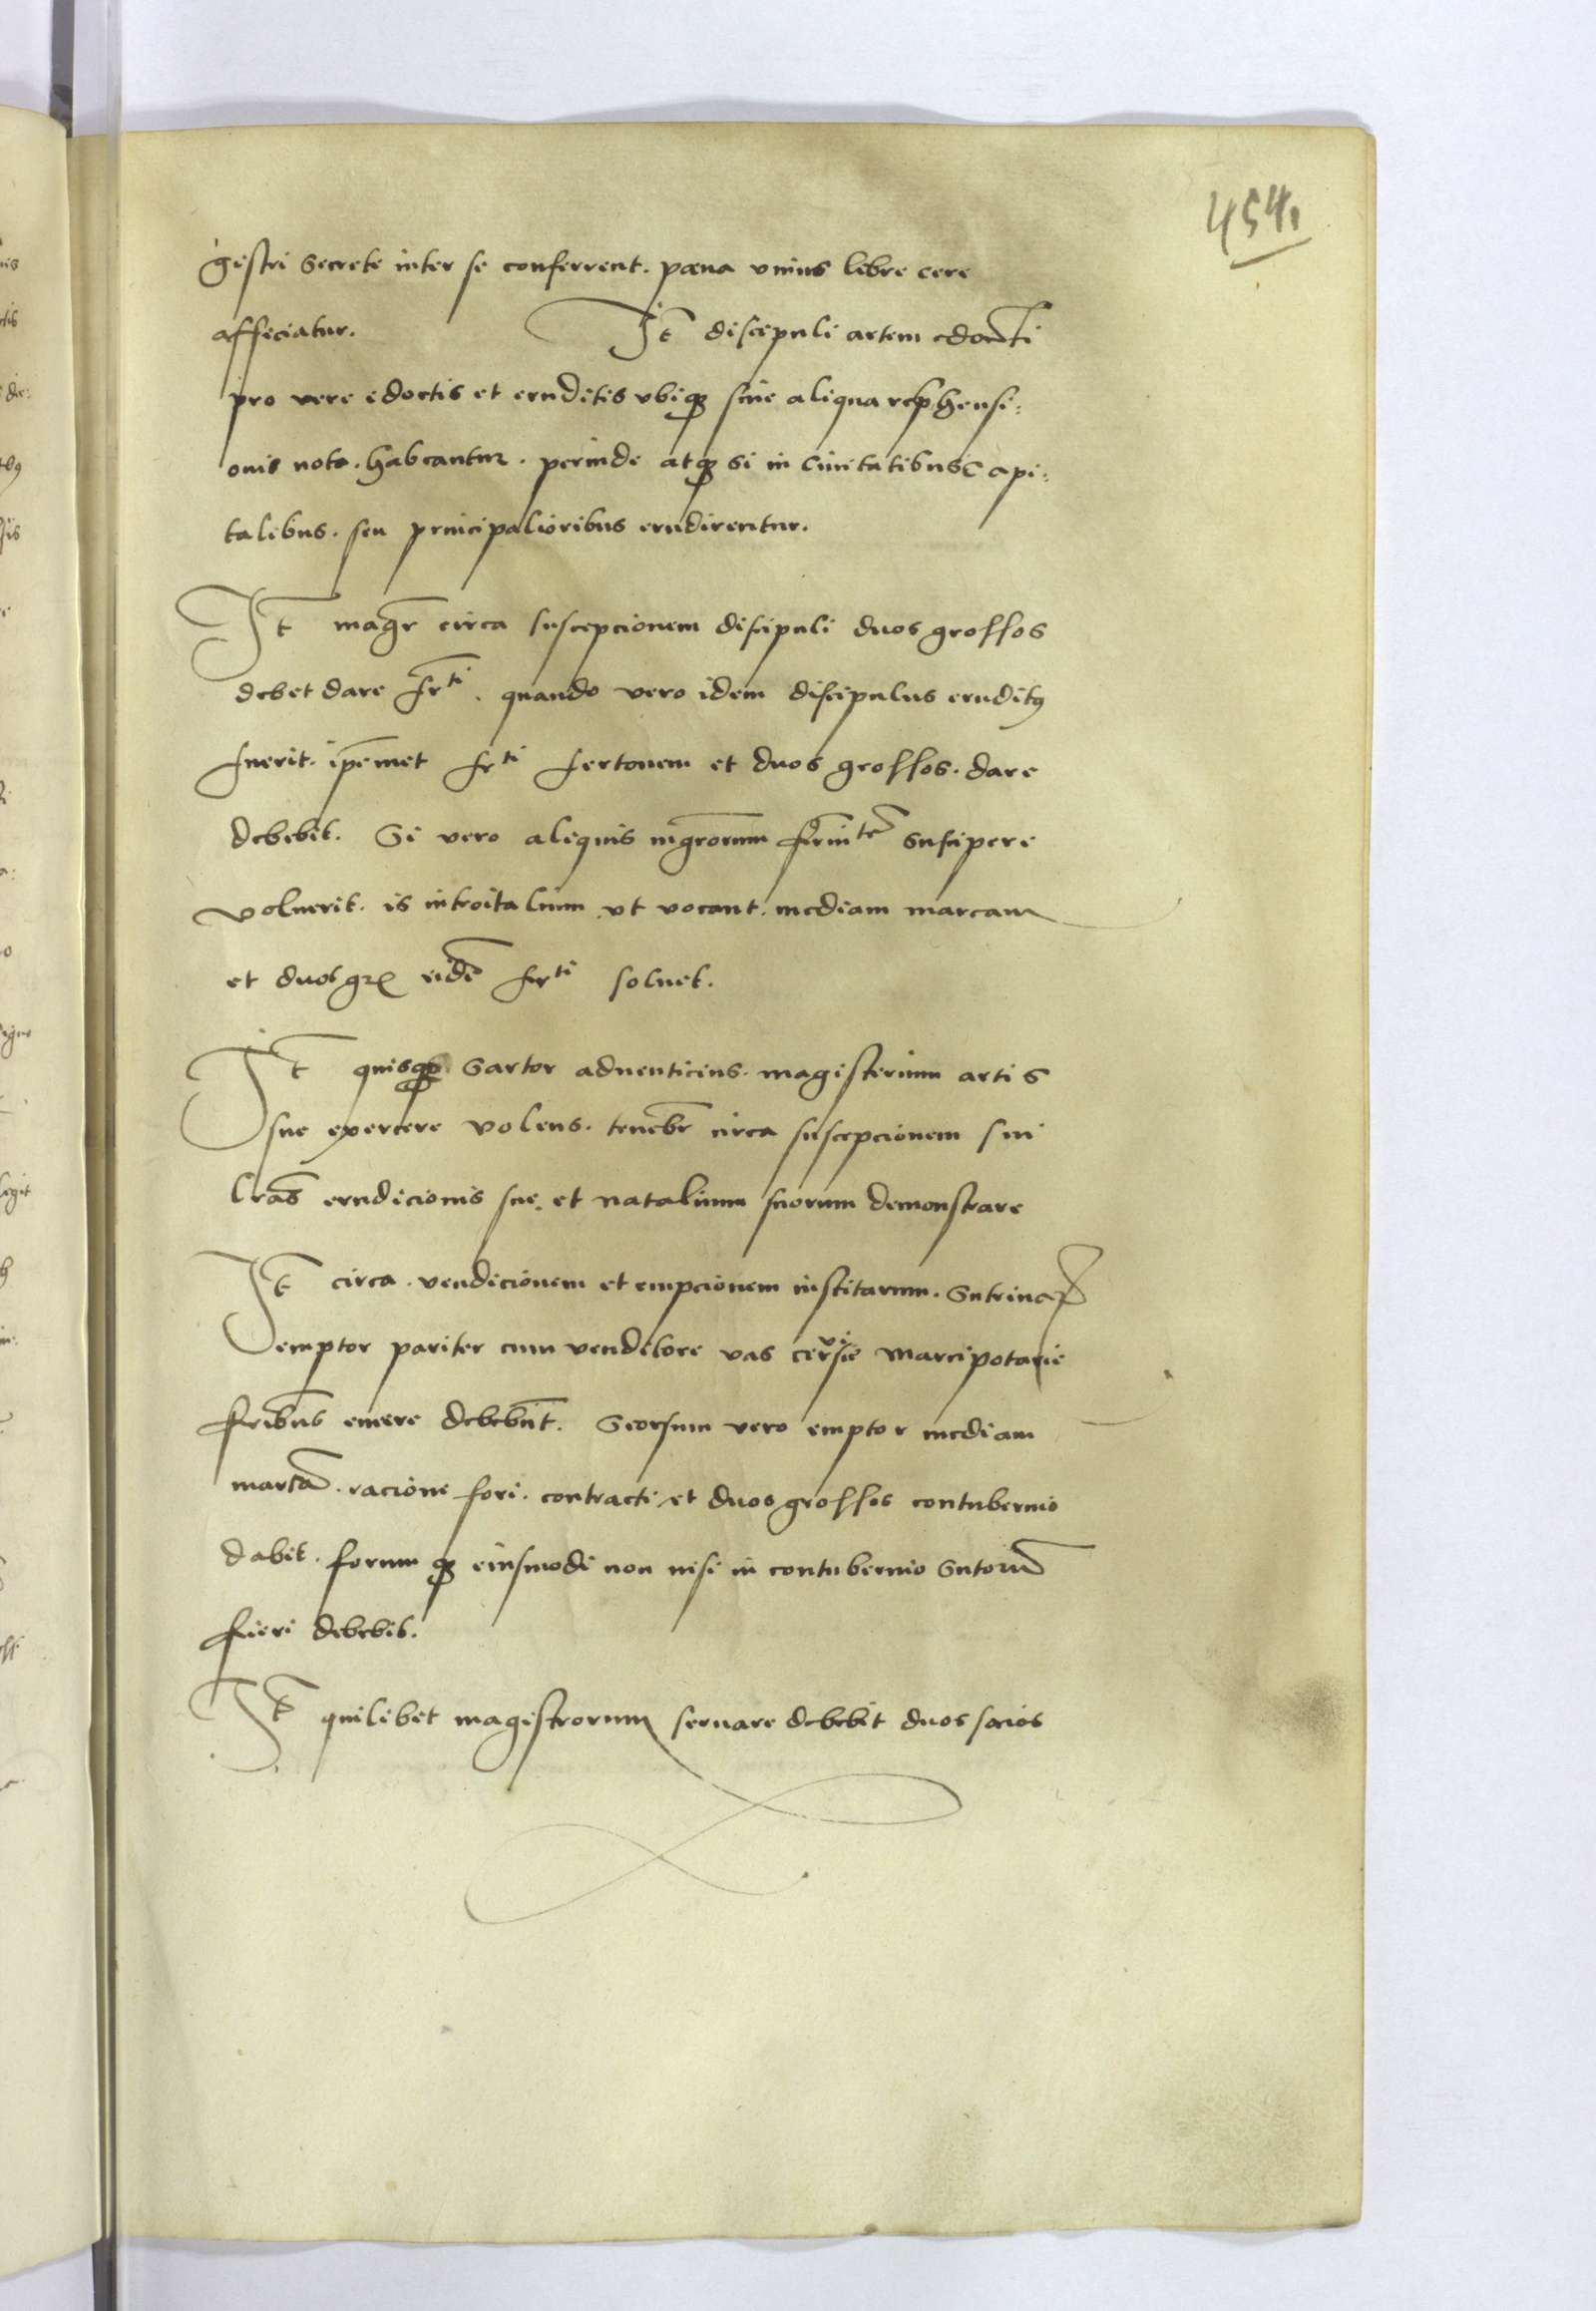 454.
gistri secrete inter se conferrent. pœna vnius libre cere
afficiatur. It̄ discipuli artem edocti
pro vere edoctis et eruditis vbiqꝫ sine aliqua reprehensi:
onis nota. habeantur. perinde atqꝫ si in Ciuitatibus Capi:
talibus. seu principalioribus erudirentur.
It̄ magr̄ circa suscepcionem discipuli duos grossos
debet dare fr̄ti. quando vero idem discipulus eruditꝰ
fuerit. ip̄emet frti fertonem et duos grossos. dare
debebit. Si vero aliquis mgr̄orum fr̄nitē suscipere
voluerit. is introitalium vt vocant. mediam marcam
et duos gr̄ eidē frti soluet.
It̄ quisqꝫ Sartor aduenticius. magisterium artis
sue exercere volens. teneb̄r circa suscepcionem sui
lr̄as erudicionis sue. et natalium suorum demonstrare
It̄ circa. vendicionem et empcionem institarum. Sutrinaꝝ
emptor pariter cum venditore vas ceruisie marcipotarie
fr̄ibus emere debebūt. Seorsum vero emptor mediam
marcā. racione fori. contracti et duos grossos contubernio
dabit. forum qꝫ eiusmodi non nisi in contubernio Sutorū
fieri debebit.
It̄ quilibet magistrorum seruare debebit duos socios